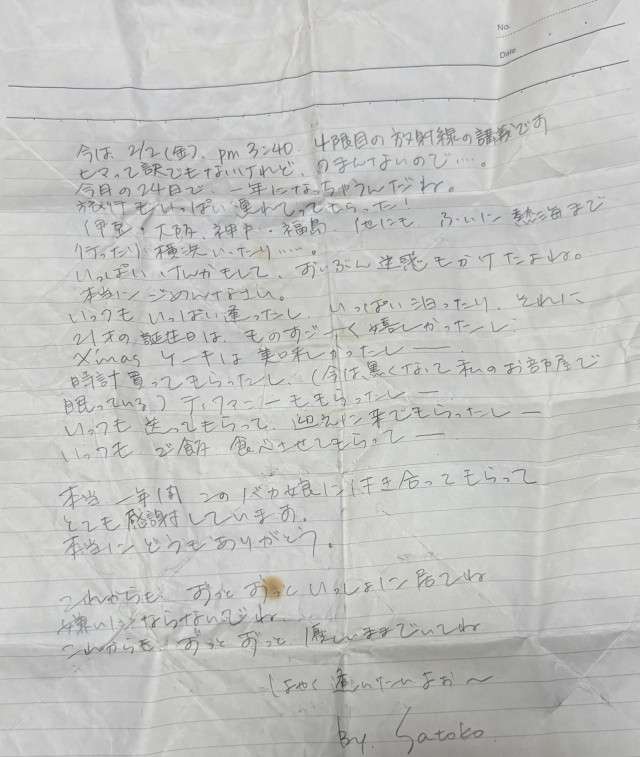 No.
Date
今は 2/2(金)、pm 3:40、4限目の放射線の講義です
ヒマって訳でもないけれど、のまんないので….。
今月の24日で、一年になっちゃうんだね。
旅行もいっぱい連れてってもらった!
(伊豆・大阪・神戸・福島、他にも ふいに 熱海まで
行ったり 横浜いったり…….。
いっぱい けんかもして、ずいぶん 迷惑もかけたよね。
本当に ごめんなさい。
いつも いっぱい逢ったし、いっぱい 泊ったり、それに
21才の誕生日は、ものすごーく 嬉しかったし、
X'mas ケーキは 美味しかったしー
時計買ってもらったし、(今は黒くなって 私のお部屋で
眠っている) ティファニーももらったしー
いつも 送ってもらって、迎えに来てもらったしー
いつも ご飯 食べさせてもらってー
本当 一年間 このバカ娘に 付き合ってもらって
とても感謝しています。
本当に どうも ありがとう。
これからも ずっと ずっと いっしょに 居てね
嫌いに ならないでね、
これからも ずっと ずっと 優しいままでいてね
はやく 逢いたいよぉ〜
By. Satoko